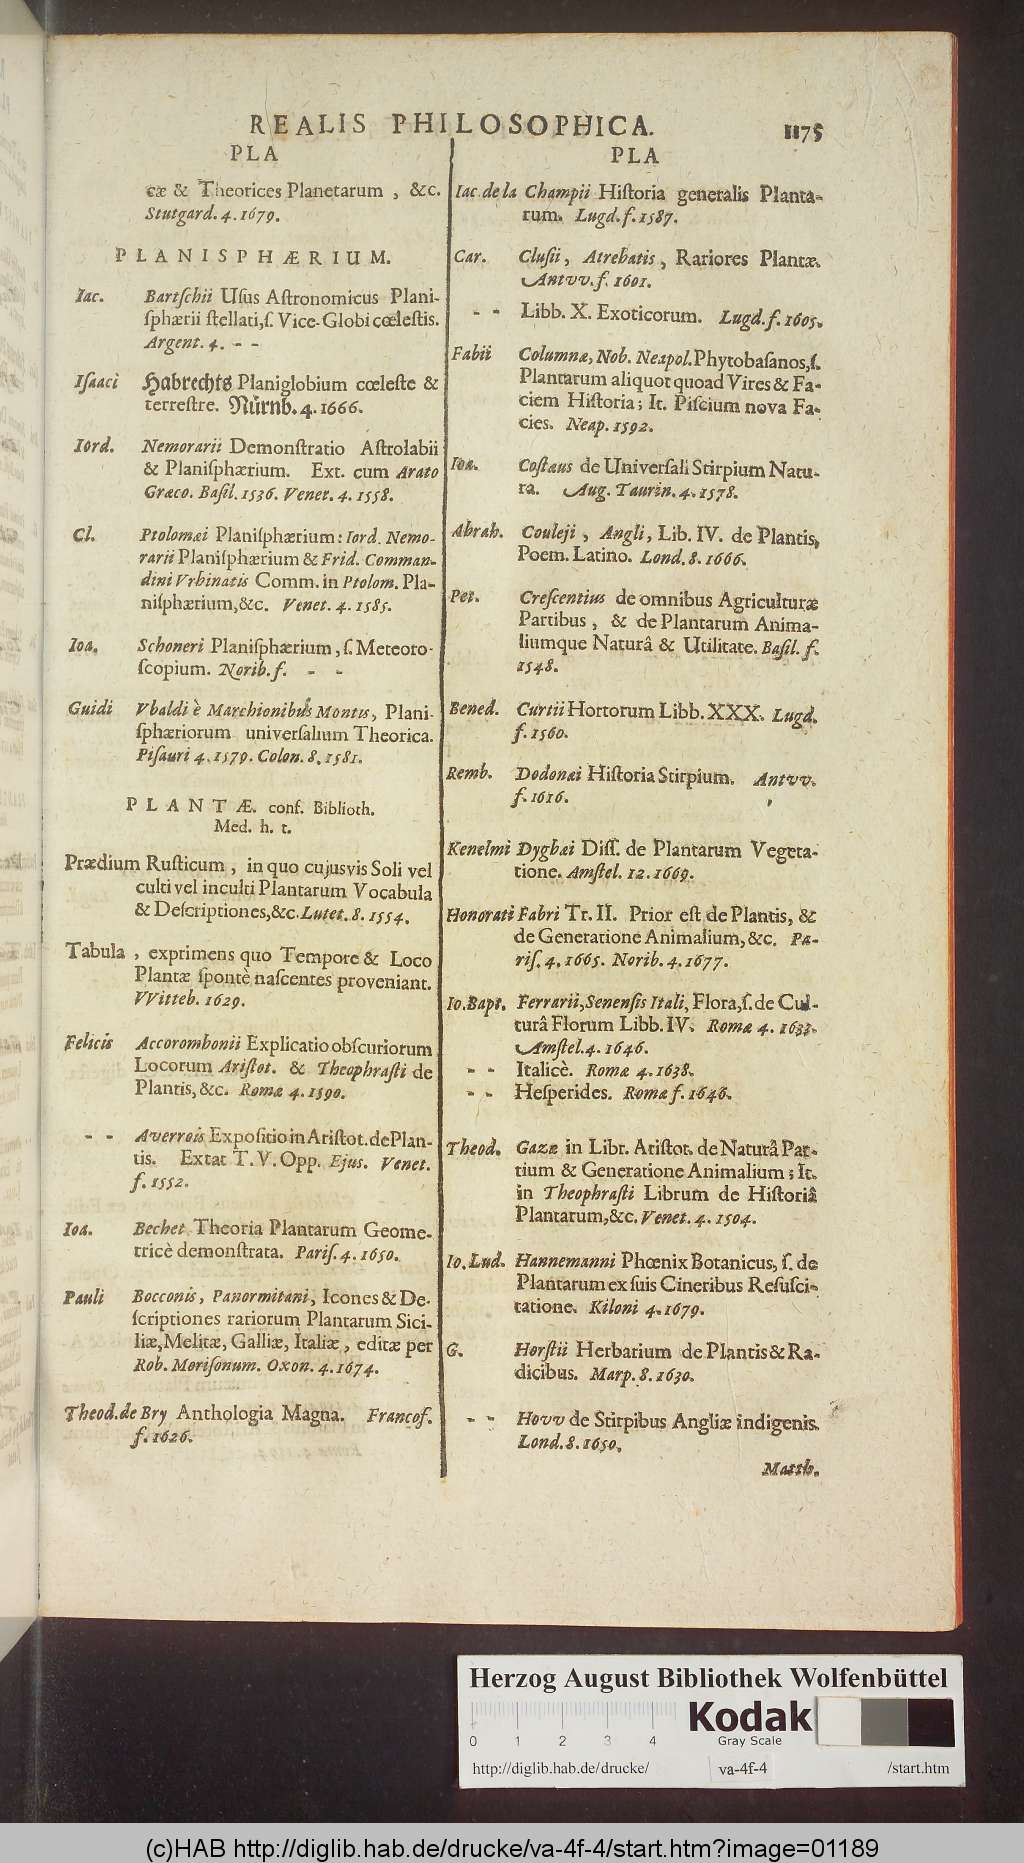 REALIS PHILOSOPHICA. 1175
PLA
cæ & Theorices Planetarum , &c.
Stutgard. 4. 1679.
PLANISPHÆRIUM.
Iac. Bartſchii Uſus Aſtronomicus Plani-
ſphærii ſtellati, ſ. Vice-Globi cœleſtis.
Argent. 4. - -
Iſaaci Habrechts Planiglobium cœleſte &
terreſtre. Nürnb. 4. 1666.
Iord. Nemorarii Demonſtratio Aſtrolabii
& Planiſphærium. Ext. cum Arato
Græco. Baſil. 1536. Venet. 4. 1558.
Cl. Ptolomæi Planiſphærium: Iord. Nemo-
rarii Planiſphærium & Frid. Comman-
dini Vrbinatis Comm. in Ptolom. Pla-
niſphærium, &c. Venet. 4. 1585.
Ioa. Schoneri Planiſphærium, ſ. Meteoro-
ſcopium. Norib. f. - -
Guidi Vbaldi è Marchionibus Montis, Plani-
ſphæriorum universalium Theorica.
Piſauri 4. 1579. Colon. 8. 1581.
PLANTÆ. conf. Biblioth.
Med. h. t.
Prædium Ruſticum , in quo cujusvis Soli vel
culti vel inculti Plantarum Vocabula
& Deſcriptiones, &c. Lutet. 8. 1554.
Tabula , exprimens quo Tempore & Loco
Plantæ ſpontè naſcentes proveniant.
VVitteb. 1629.
Felicis Accorombonii Explicatio obſcuriorum
Locorum Ariſtot. & Theophraſti de
Plantis, &c. Romæ 4. 1590.
- - Averrois Expoſitio in Ariſtot. de Plan-
tis. Extat T. V. Opp. Ejus. Venet.
f. 1552.
Ioa. Bechet Theoria Plantarum Geome-
tricè demonſtrata. Pariſ. 4. 1650.
Pauli Bocconis, Panormitani, Icones & De-
ſcriptiones rariorum Plantarum Sici-
liæ, Melitæ, Galliæ, Italiæ, editæ per
Rob. Moriſonum. Oxon. 4. 1674.
Theod. de Bry Anthologia Magna. Francof.
f. 1626.
PLA
Iac. de la Champii Hiſtoria generalis Planta-
rum. Lugd. f. 1587.
Car. Cluſii, Atrebatis, Rariores Plantæ.
Antvv. f. 1601.
- - Libb. X. Exoticorum. Lugd. f. 1605.
Fabii Columnæ, Nob. Neapol. Phytobaſanos, ſ.
Plantarum aliquot quoad Vires & Fa-
ciem Hiſtoria; It. Piſcium nova Fa-
cies. Neap. 1592.
Ioa. Coſtæus de Univerſali Stirpium Natu-
ra. Aug. Taurin. 4. 1578.
Abrah. Couleji , Angli, Lib. IV. de Plantis,
Poem. Latino. Lond. 8. 1666.
Pet. Creſcentius de omnibus Agriculturæ
Partibus, & de Plantarum Anima-
liumque Naturâ & Utilitate. Baſil. f.
1548.
Bened. Curtii Hortorum Libb. XXX. Lugd.
f. 1560.
Remb. Dodonæi Hiſtoria Stirpium. Antvv.
f. 1616.
Kenelmi Dygbæi Diſſ. de Plantarum Vegeta-
tione. Amſtel. 12. 1669.
Honorati Fabri Tr. II. Prior eſt de Plantis, &
de Generatione Animalium, &c. Pa-
riſ. 4. 1665. Norib. 4. 1677.
Io. Bapt. Ferrarii, Senenſis Itali, Flora, ſ. de Cul-
turâ Florum Libb. IV. Romæ 4. 1633.
Amſtel. 4. 1646.
- - Italicè. Romæ 4. 1638.
- - Heſperides. Romæ f. 1646.
Theod. Gazæ in Libr. Ariſtot. de Naturâ Par-
tium & Generatione Animalium; It.
in Theophraſti Librum de Hiſtoriâ
Plantarum, &c. Venet. 4. 1504.
Io. Lud. Hannemanni Phœnix Botanicus, ſ. de
Plantarum ex ſuis Cineribus Reſuſci-
tatione. Kiloni 4. 1679.
G. Horſtii Herbarium de Plantis & Ra-
dicibus. Marp. 8. 1630.
- - Hovv de Stirpibus Angliæ indigenis.
Lond. 8. 1650.
Matth.
Herzog August Bibliothek Wolfenbüttel
0 1 2 3 4
Kodak
Gray Scale
http://diglib.hab.de/drucke/ va-4f-4 /start.htm
(c)HAB http://diglib.hab.de/drucke/va-4f-4/start.htm?image=01189